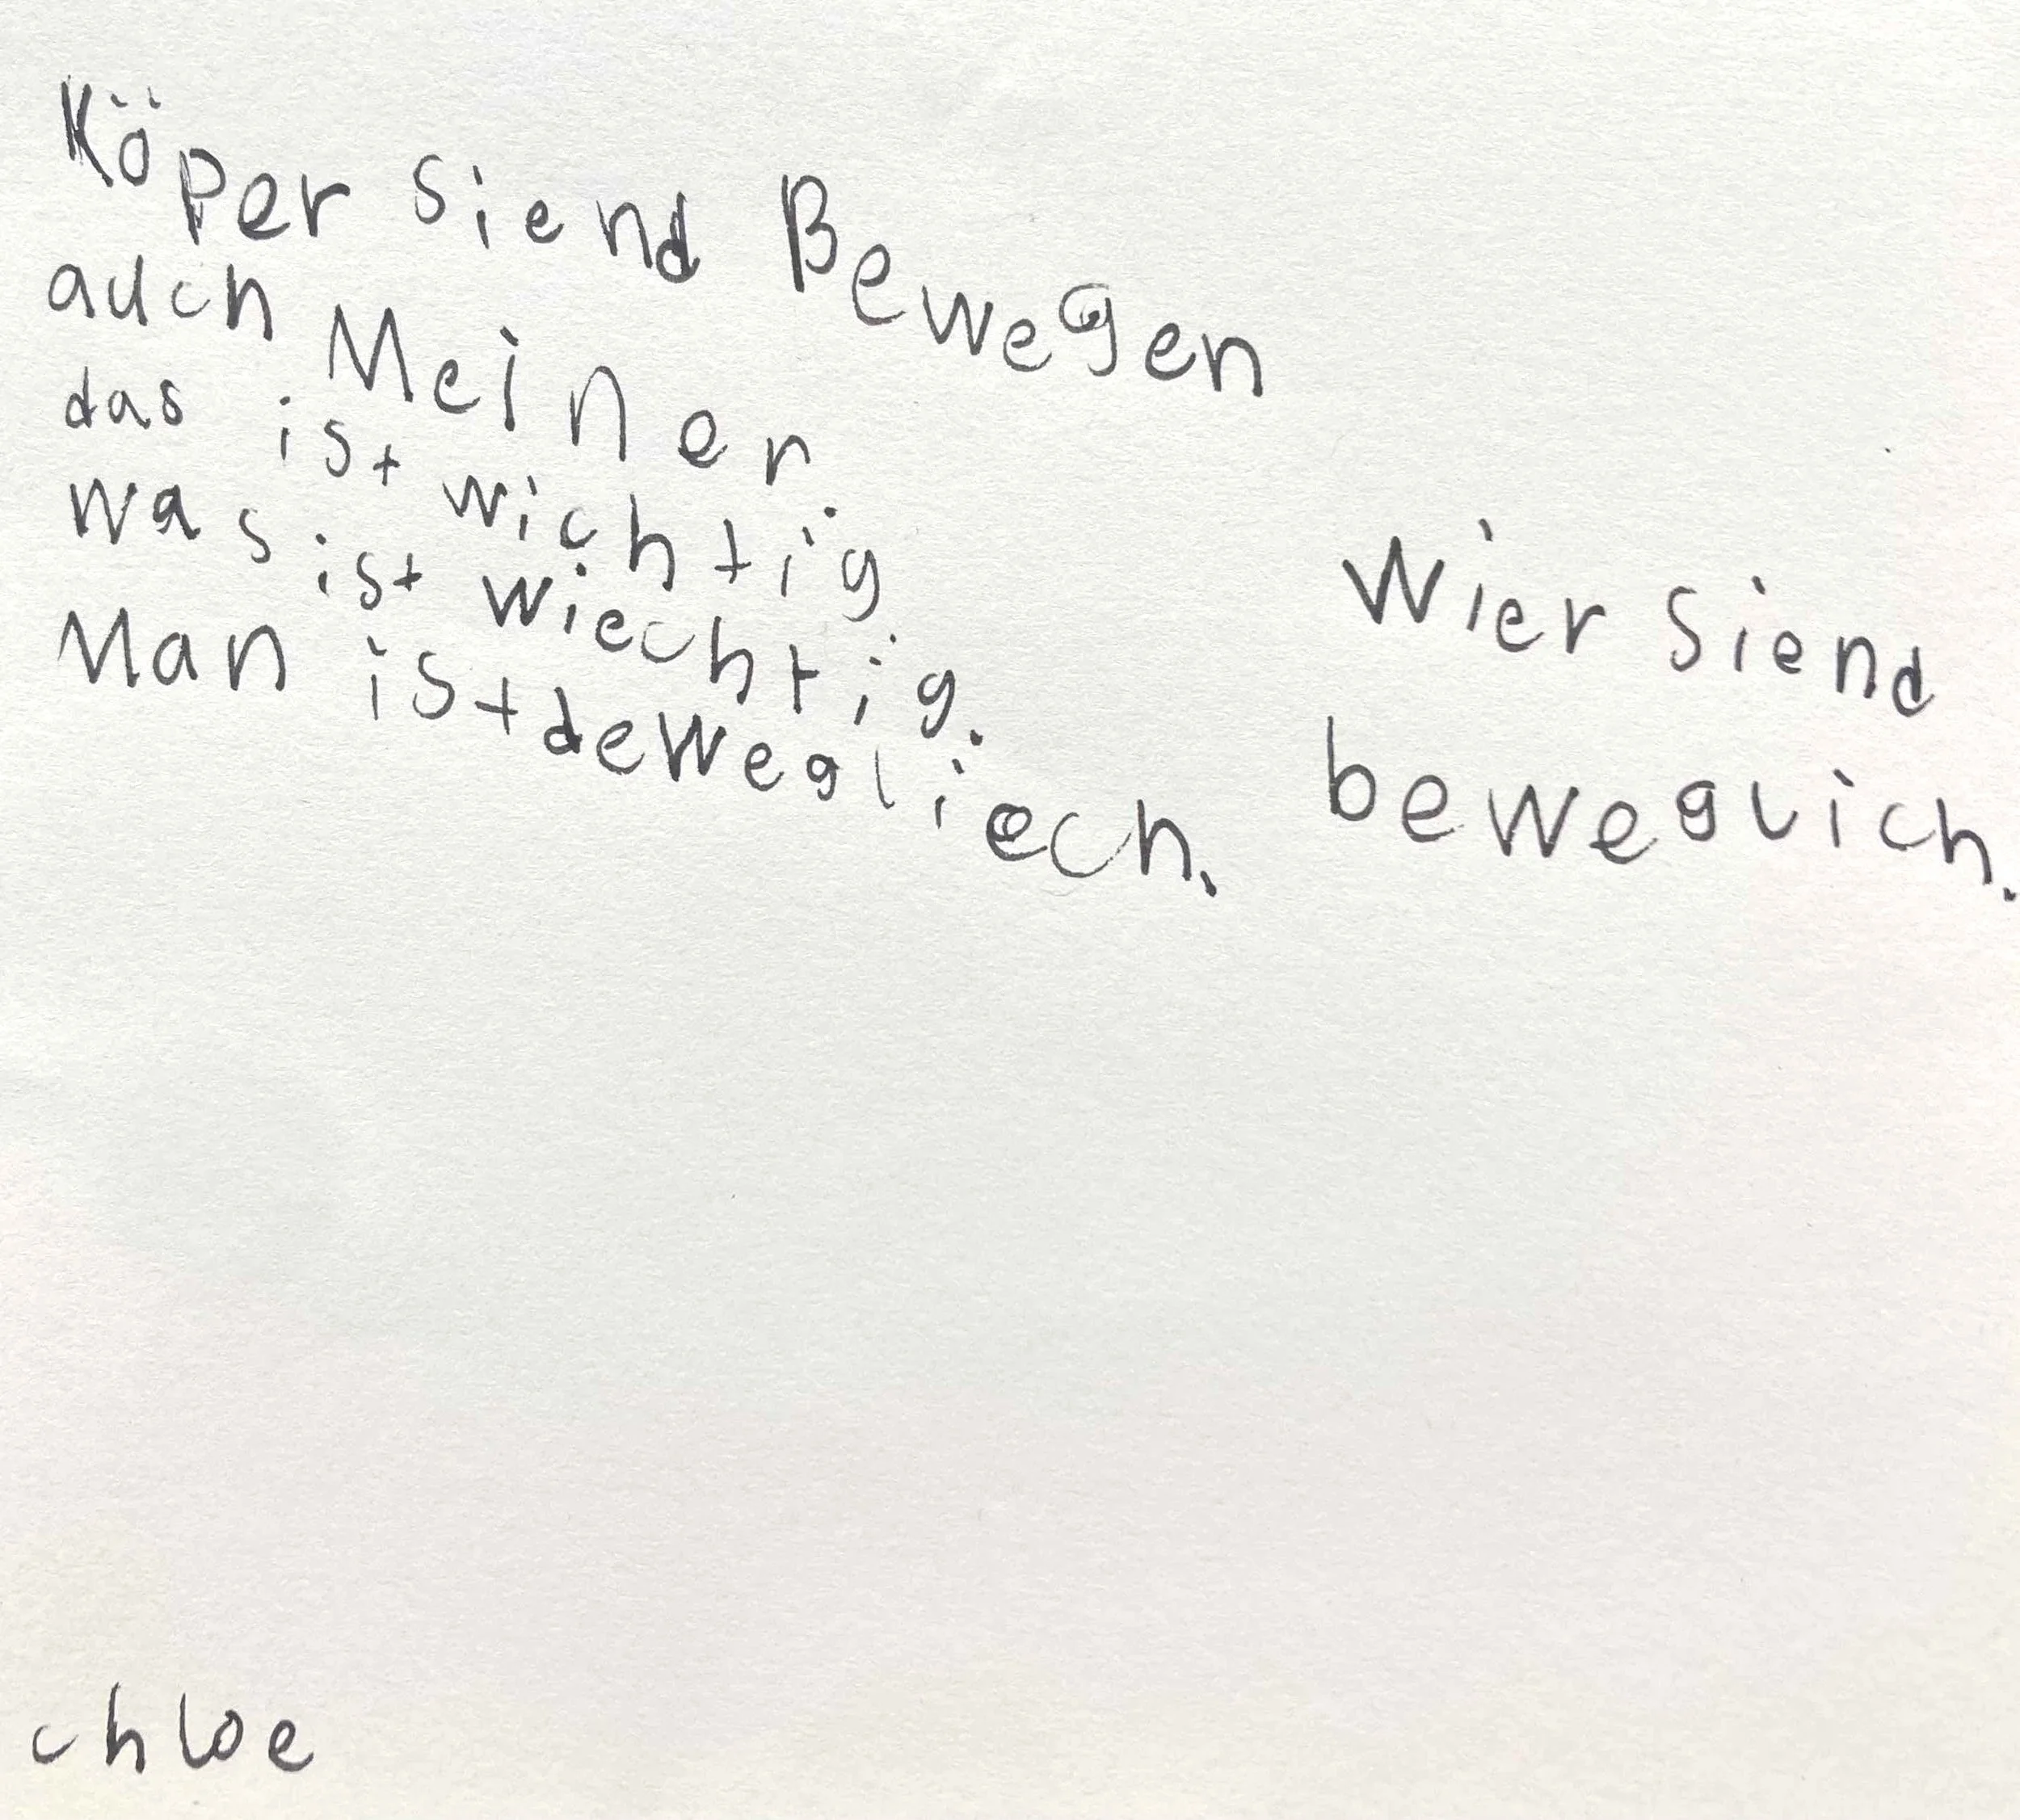 Köper siend Bewegen
auch Meiner
das ist wichtig.
was ist wiechtig.
Man ist dewegliech.
Wier siend
beweglich.
chloe